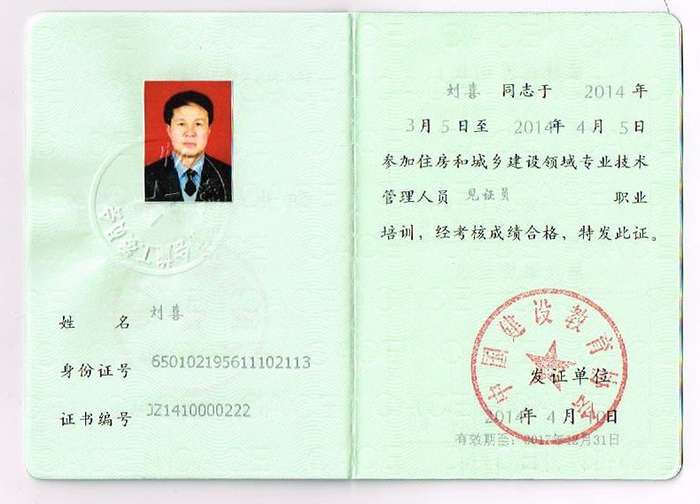 姓 名 刘喜
身份证号 650102195611102113
证书编号 JZ1410000222
刘喜 同志于 2014 年
3月 5日至 2014年 4月 5日
参加住房和城乡建设领域专业技术
管理人员 见证员 职业
培训，经考核成绩合格，特发此证。
中国建设教育协会
发证单位
2014年 4月10日
有效期至：2017年12月31日